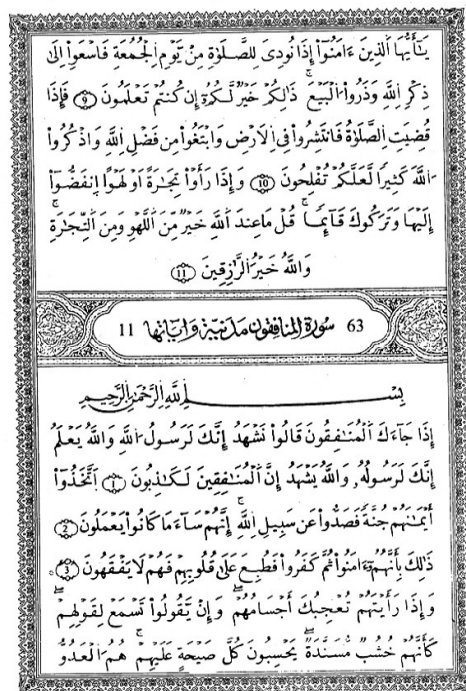 يَـٰٓأَيُّهَا ٱلَّذِينَ ءَامَنُوٓا۟ إِذَا نُودِىَ لِلصَّلَوٰةِ مِنْ يَّوْمِ اِ۬لْجُمُعَةِ فَاسْعَوِا۟ اِلَىٰ
ذِكْرِ اِ۬للَّهِ وَذَرُوا۟ اُ۬لْبَيْعَ ذَٰلِكُمْ خَيْرٌ لَّكُمُۥٓ إِن كُنتُمْ تَعْلَمُونَ 9 فَإِذَا
قُضِيَتِ اِ۬لصَّلَوٰةُ فَانتَشِرُوا۟ فِى اِ۬لَارْضِ وَابْتَغُوا۟ مِن فَضْلِ اِ۬للَّهِ وَاذْكُرُوا۟
اُ۬للَّهَ كَثِيرًا لَّعَلَّكُمْ تُفْلِحُونَ 10 وَإِذَا رَأَوْا۟ تِجَـٰرَةً اَوْ لَهْوًا اِ۪نفَضُّوٓا۟
إِلَيْهَا وَتَرَكُوكَ قَآئِمًا قُلْ مَا عِندَ اَ۬للَّهِ خَيْرٌ مِّنَ اَ۬للَّهْوِ وَمِنَ اَ۬لتِّجَـٰرَةِ
وَاللَّهُ خَيْرُ اُ۬لرَّٰزِقِينَ 11
63 سورة المنافقون مدنية وءاياتها 11
بِسْمِ اِ۬للَّهِ اِ۬لرَّحْمَـٰنِ اِ۬لرَّحِيمِ
إِذَا جَآءَكَ اَ۬لْمُنَـٰفِقُونَ قَالُوا۟ نَشْهَدُ إِنَّكَ لَرَسُولُ اُ۬للَّهِ وَاللَّهُ يَعْلَمُ
إِنَّكَ لَرَسُولُهُۥ وَاللَّهُ يَشْهَدُ إِنَّ اَ۬لْمُنَـٰفِقِينَ لَكَـٰذِبُونَ 1 اَ۪تَّخَذُوٓا۟
أَيْمَـٰنَهُمْ جُنَّةً فَصَدُّوا۟ عَن سَبِيلِ اِ۬للَّهِ إِنَّهُمْ سَآءَ مَا كَانُوا۟ يَعْمَلُونَ 2
ذَٰلِكَ بِأَنَّهُمُۥٓ ءَامَنُوا۟ ثُمَّ كَفَرُوا۟ فَطُبِعَ عَلَىٰ قُلُوبِهِمْ فَهُمْ لَا يَفْقَهُونَ 3
وَإِذَا رَأَيْتَهُمْ تُعْجِبُكَ أَجْسَامُهُمْ وَإِنْ يَّقُولُوا۟ تَسْمَعْ لِقَوْلِهِمْ
كَأَنَّهُمْ خُشُبٌ مُّسَنَّدَةٌ يَحْسِبُونَ كُلَّ صَيْحَةٍ عَلَيْهِمْ هُمُ اُ۬لْعَدُوُّ